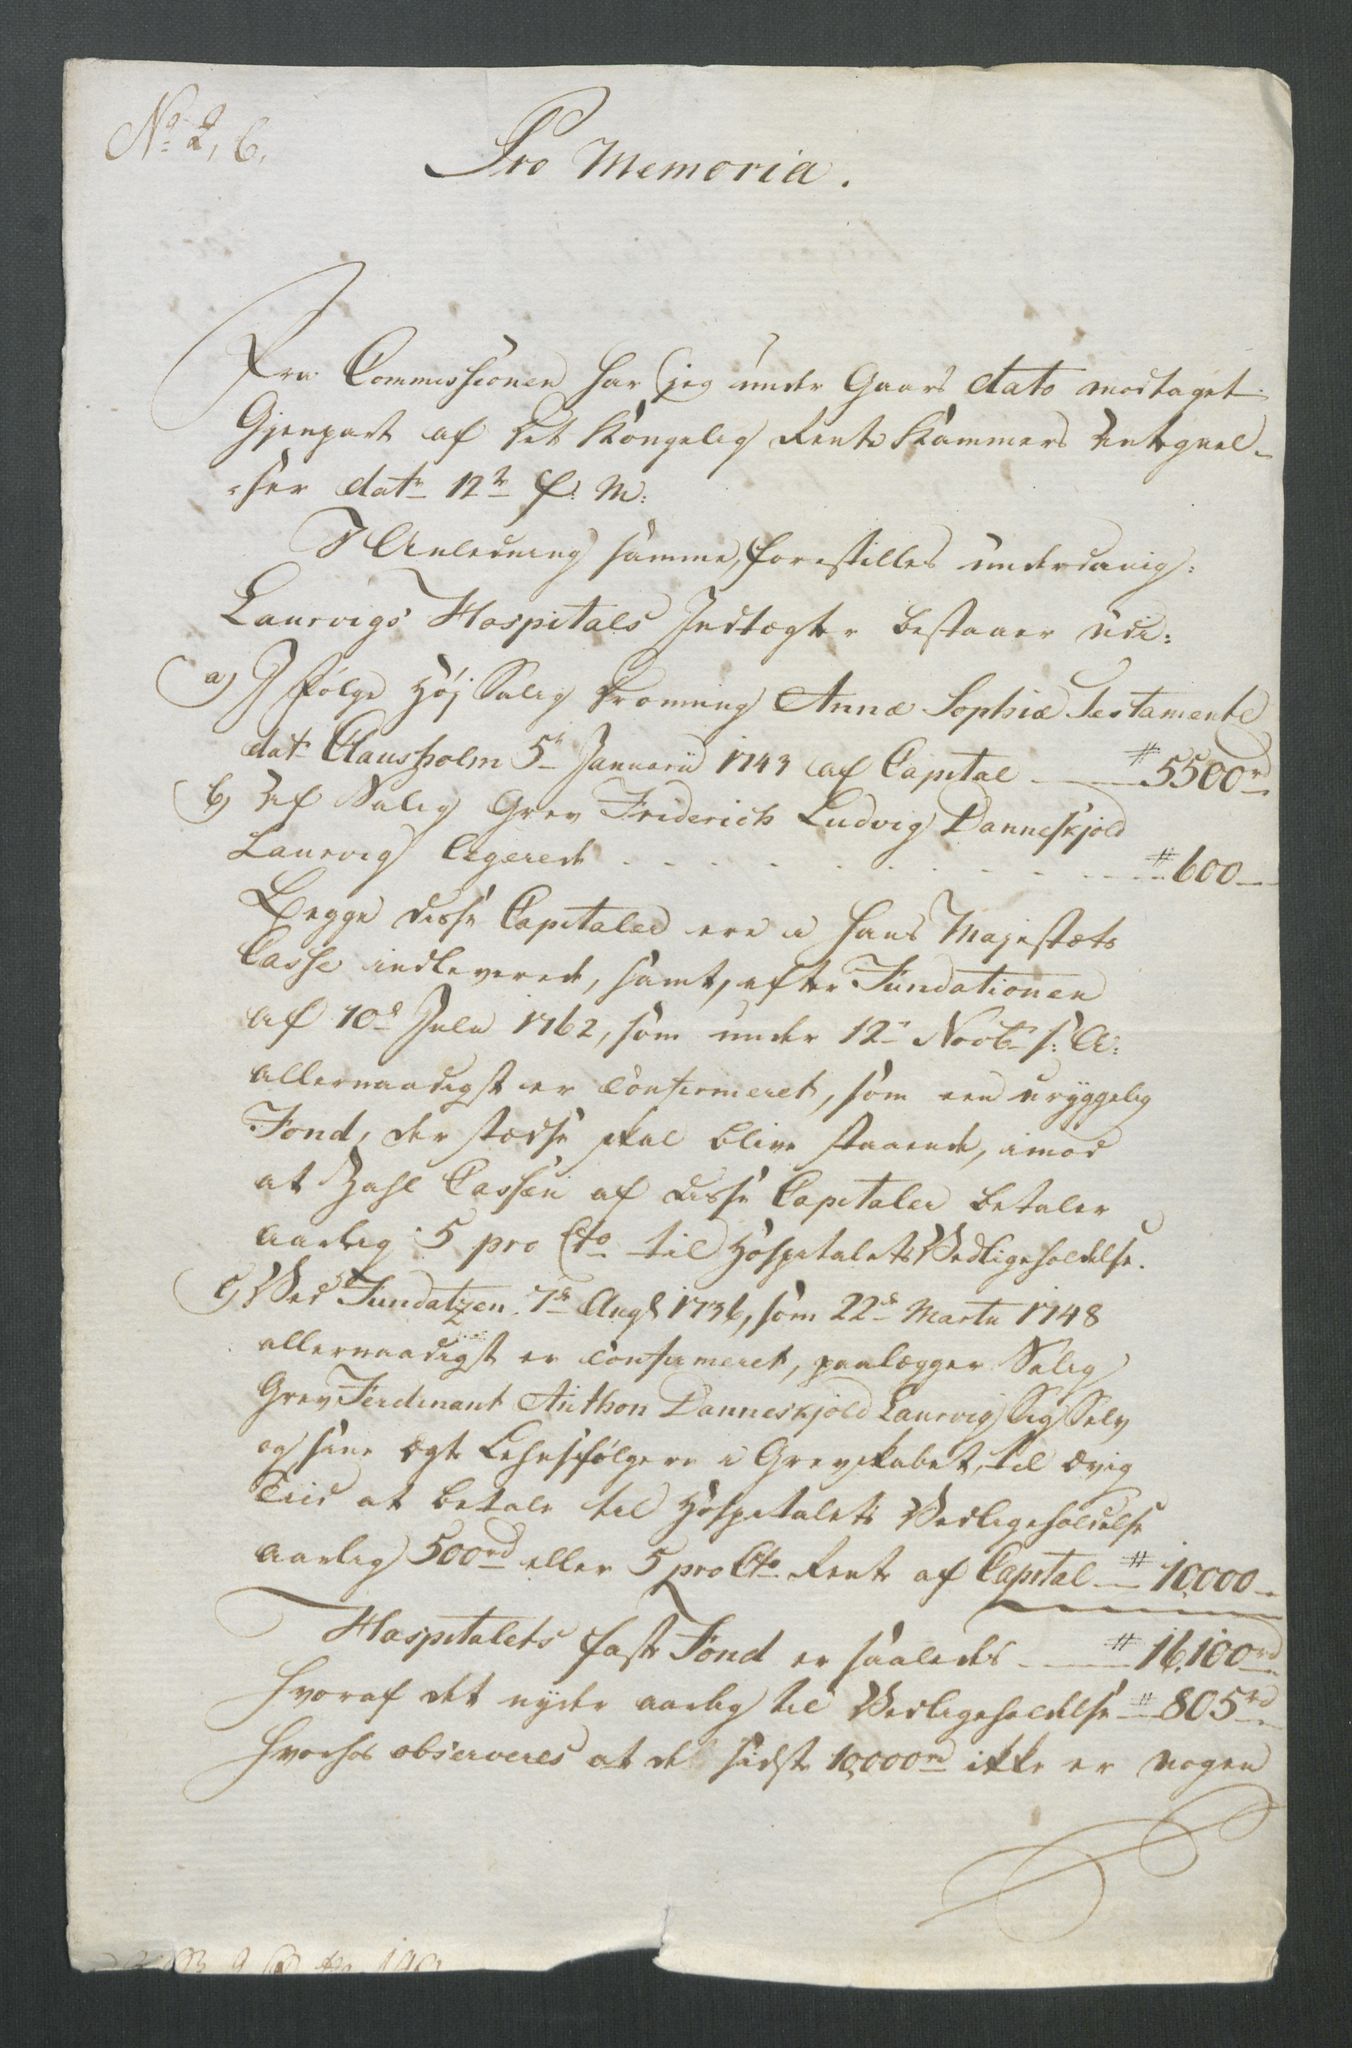 No. 2, C.
Pro Memoria.
Fra Commissionen har jeg under Gaars dato modtaget
Gjenpart af det Kongelig Rente Kammers Antegnel-
-ser dat. 12te f: M:
I Anledning samme, forestilles underdanig:
Laurvigs Hospitals Indtægter bestaaer udi:
a) I følge Høj Salig Dronning Annæ Sophiæ Testamente
dat. Clausholm 5te Januarii 1743 af Capital # 5500rd
b) Af Salig Grev Friderich Ludvig Danneskjold
Laurvig legerede # 600
Begge disse Capitaler ere i Hans Majestæts
Casse indleverede, samt, efter Fundationen
af 10de Julii 1762, som under 12te Novbr s: A:
allernaadigst er confirmeret, som een uryggelig
Fond, der stedse skal blive staaende, imod
at Zahl Cassen af disse Capitaler betaler
aarlig 5 pro Cto til Hospitalets Vedligeholdelse.
c) Ved Fundatzen 7de Augt 1736, som 22de Martii 1748
allernaadigst er confirmeret, paalægger Salig
Grev Ferdinant Anthon Danneskjold Laurvig Sig Selv
og sine ægte Lehnsfølgere i Grevskabet, til ævig
Tiid at betale til Hospitalets Vedligeholdelse
aarlig 500rd eller 5 pro Cto Rente af Capital # 10,000
Hospitalets faste Fond er saaledes # 16,100rd
hvoraf det nyder aarlig til Vedligeholdelse # 805rd
hvorhos observeres at de sidste 10,000rd ikke er nogen